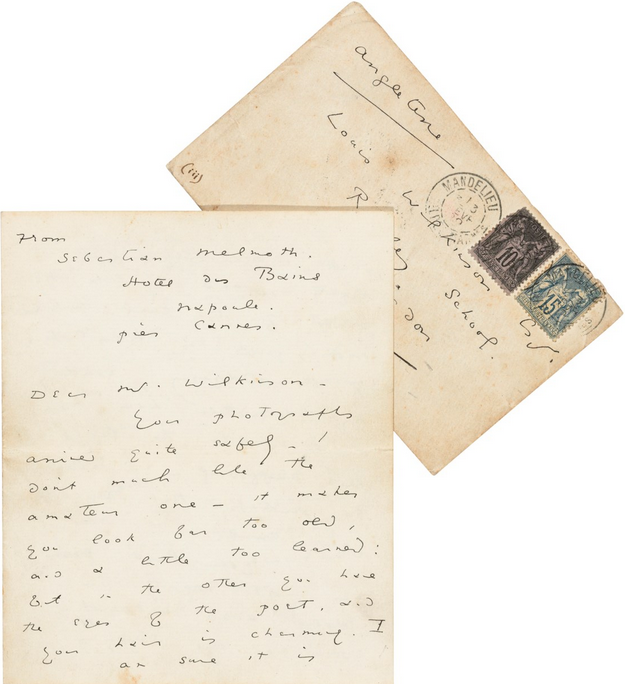 Angleterre
Louis Wilkinson Esq.
School.
(iii)
MANDELIEU
10
15
From
Sebastian Melmoth.
Hotel des Bains
Napoule.
près Cannes.
Dear Mr. Wilkinson –
Your photographs
arrived quite safely – I
don't much like the
amateur one – it makes
you look far too old,
and a little too learned:
but in the other you have
the eyes of the poet, and
your hair is charming. I
am sure it is